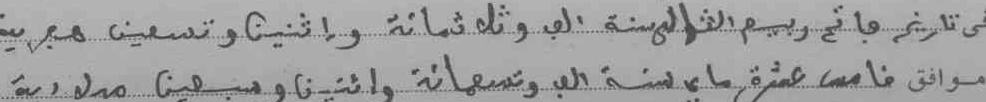 في تاريخ فاتح ربيع الثاني سنة الف وثلاثمائة وإثنين وتسعين هجرية
موافق خامس عشرة ماي سنة الف وتسعمائة واثنين وسبعين ميلادية